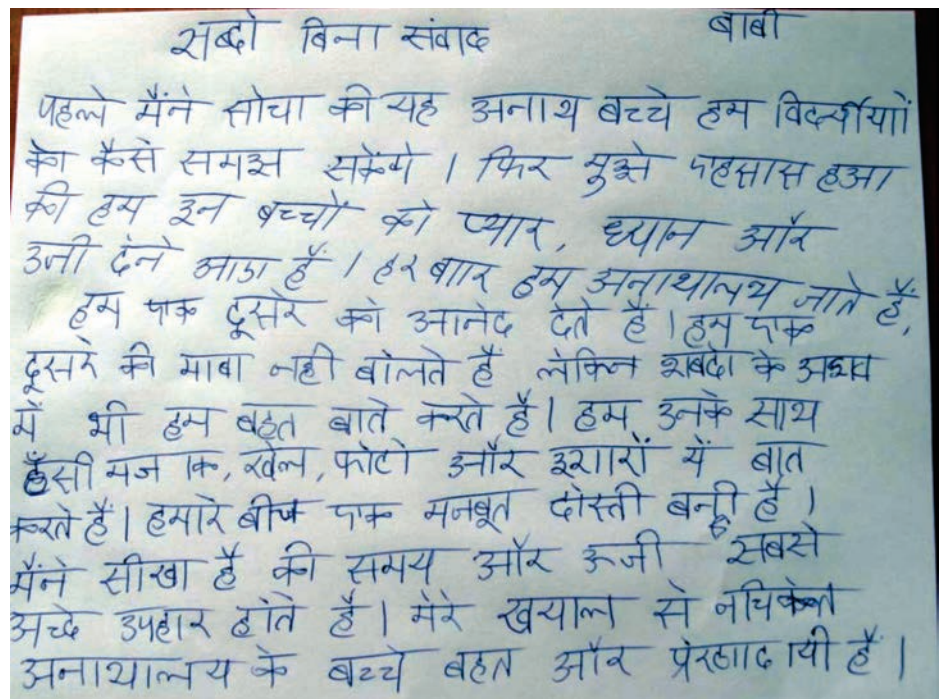 सब्दो बिना संवाद बाबी
पहले मैंने सोचा की यह अनाथ बच्चे हम विदर्स्थीयों
को कैसे समझ सकेंगे । फिर मुझे एहसास हुआ
की हम इन बच्चों को प्यार, ध्यान और
उर्जा देने आए हैं । हर बार हम अनाथालय जाते हैं,
हम एक दूसरे को आनंद देते हैं । हम एक
दूसरे की भाषा नही बोलते हैं लेकिन शबदो के अभाव
में भी हम बहुत बाते करते है । हम उनके साथ
हँसी मजाक, खेल, फोटो और इशारों में बात
करते हैं । हमारे बीच एक मजबूत दोस्ती बनी है ।
मैंने सीखा है की समय और ऊर्जा सबसे
अच्छे उपहार होते है । मेरे खयाल से नचिकेत
अनाथालय के बच्चे बहुत और प्रेरणादायी हैं ।